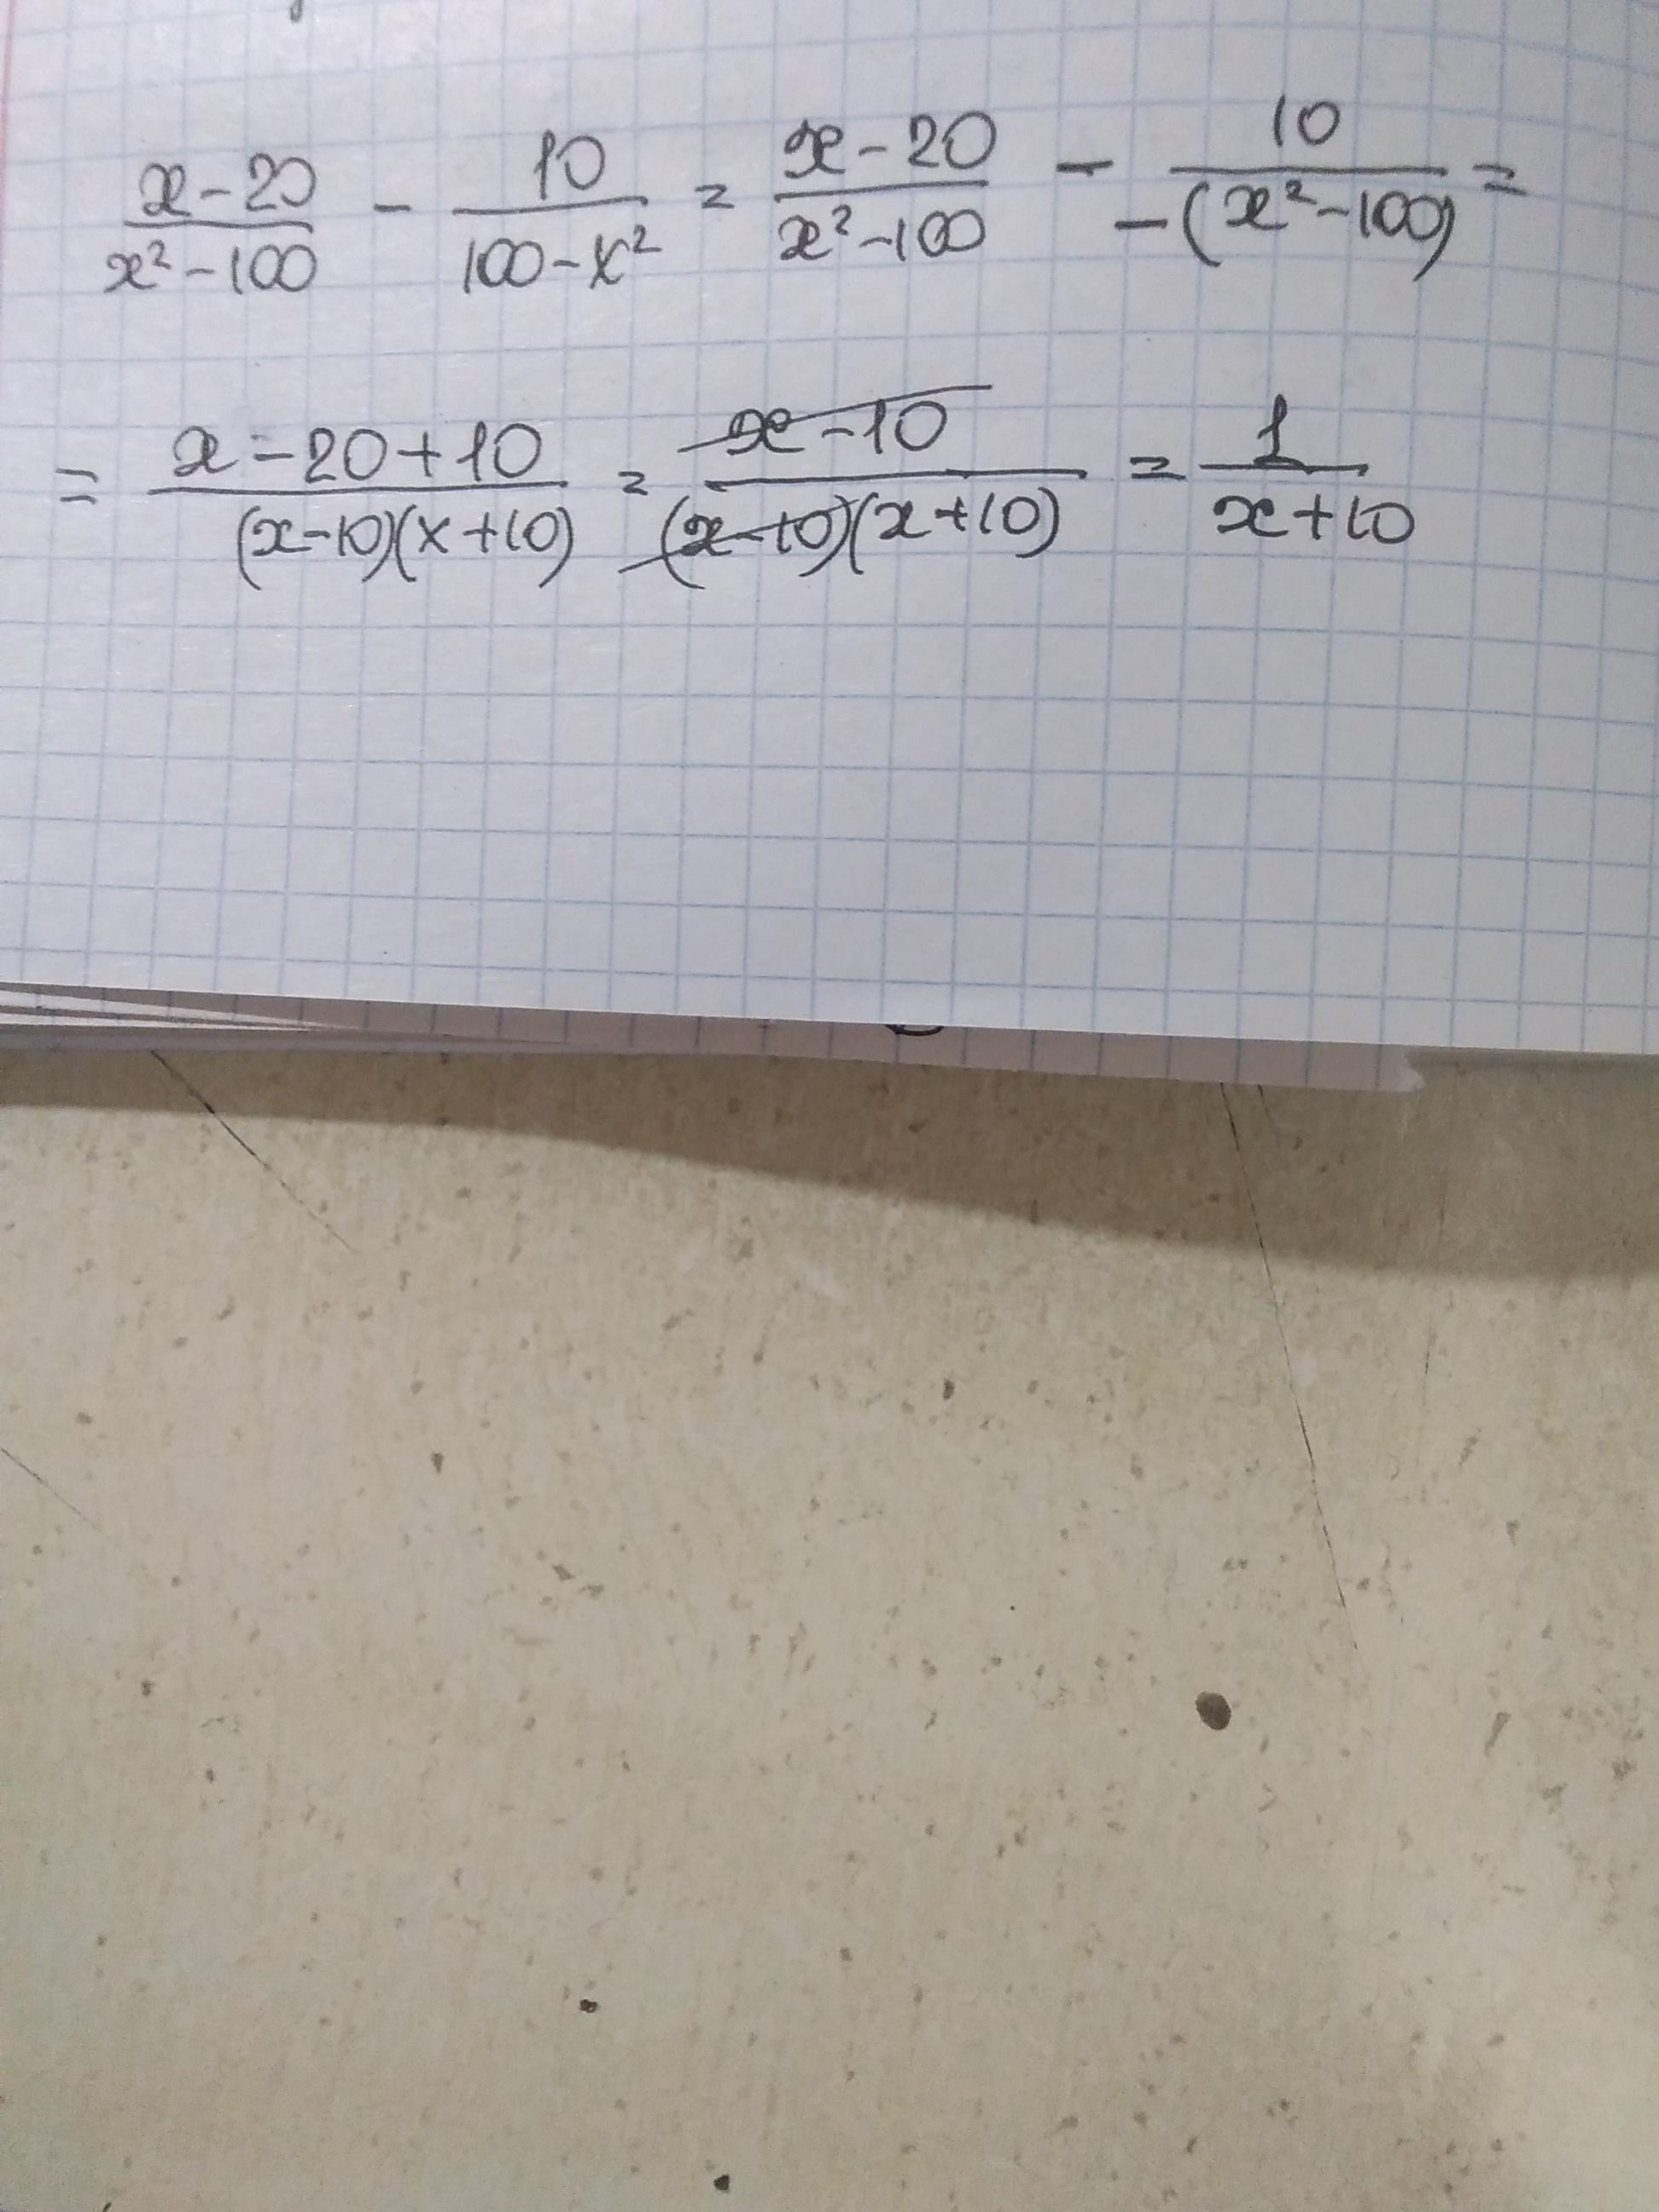 (x-20)/(x²-100) - 10/(100-x²) = (x-20)/(x²-100) - 10/(-(x²-100)) =
= (x-20+10)/((x-10)(x+10)) = (x-10)/((x-10)(x+10)) = 1/(x+10)